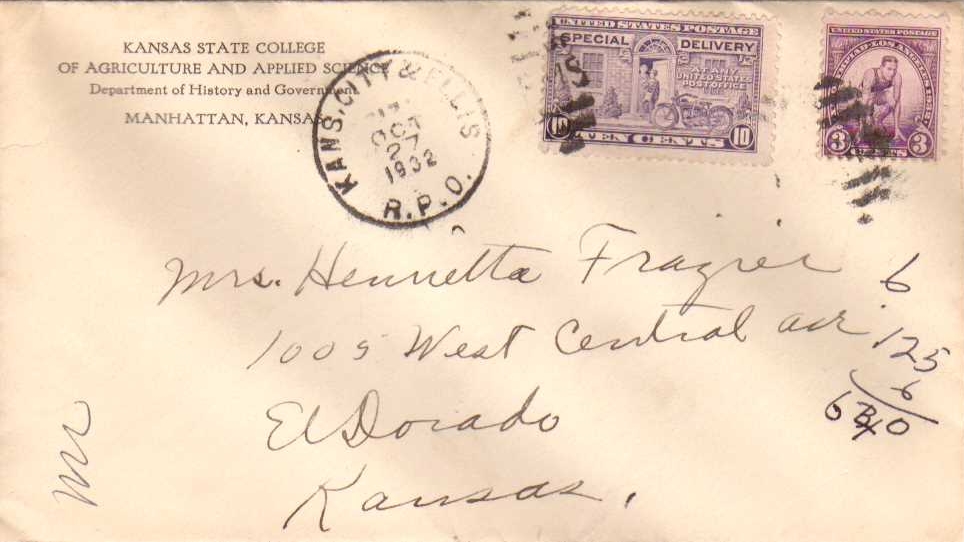 KANSAS STATE COLLEGE
OF AGRICULTURE AND APPLIED SCIENCE
Department of History and Government
MANHATTAN, KANSAS
KANS. CITY & ELLIS
OCT
27
1932
R.P.O.
UNITED STATES POSTAGE
SPECIAL DELIVERY
AT ANY
UNITED STATES
POST OFFICE
10 TEN CENTS 10
UNITED STATES POSTAGE
3 CENTS 3
Mrs. Henrietta Frazier
1005 West Central ave
ElDorado
Kansas.
6
125
6
Mr